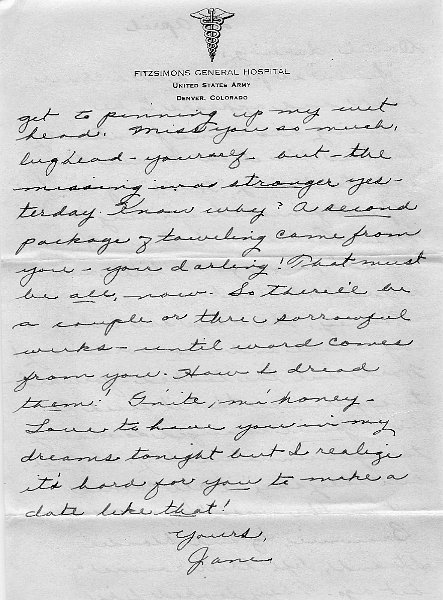 FITZSIMONS GENERAL HOSPITAL
UNITED STATES ARMY
DENVER, COLORADO
get to pinning up my wet
head! Miss you so much,
lughead - yourself - but - the
missing was stronger yes-
terday. Know why? A second
package of toweling came from
you - you darling! That must
be all, now. So there'll be
a couple or three sorrowful
weeks - until word comes
from you. How I dread
them! G'nite, mi honey -
Love to have you in my
dreams tonight but I realize
it's hard for you to make a
date like that!
Yours,
Jane